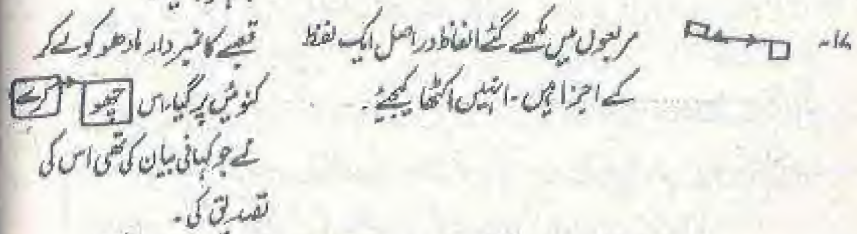 ۱۸۔
مربعوں میں لکھے گئے الفاظ دراصل ایک لفظ
کے اجزا ہیں۔ انہیں اکٹھا کیجیئے۔
قصبے کا نمبردار مادھو کو لے کر
کنوئیں پر گیا۔ اس چھو کرے
نے جو کہانی بیان کی تھی اس کی
تصدیق کی۔